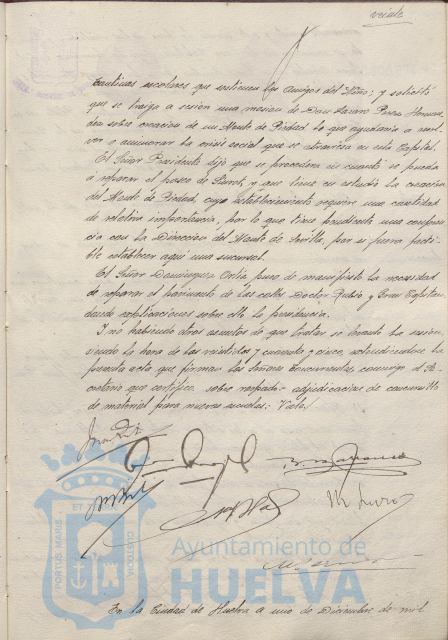 veinte
Cantinas escolares que sostienen los Amigos del Niño; y solicitó
que se traiga a sesión una mocion de Don Lazaro Perez Hernan-
dez sobre creacion de un Monte de Piedad lo que ayudaria a resol-
ver o aminorar la crisis social que se atraviesa en esta Capital.
El Señor Presidente dijo que se procederá en cuanto se pueda
a reparar el paseo de y que tiene en estudio la creacion
del Monte de Piedad, cuyo establecimiento requiere una cantidad
de relativa importancia, por lo que tiene pendiente una conferen-
cia con la Direccion del Monte de Sevilla, por si fuera facti-
ble establecer aqui una sucursal.
El Señor Dominguez Ortiz puso de manifiesto la necesidad
de reparar el pavimento de las calles Doctor Rubio y Gran Capitan
dando explicaciones sobre ello la presidencia.
Y no habiendo otros asuntos de que tratar se levantó la sesion,
siendo la hora de las veintidos y cuarenta y cinco, extendiendose la
presente acta que firman los Señores Concurrentes, conmigo el Se-
cretario que certifico. sobre raspado= adjudicacion de concursillo
de material para nuevas escuelas: Vale.
PORTUS MARIS ET TERRAE CUSTODIA
Ayuntamiento de
HUELVA
En la Ciudad de Huelva a uno de Diciembre de mil